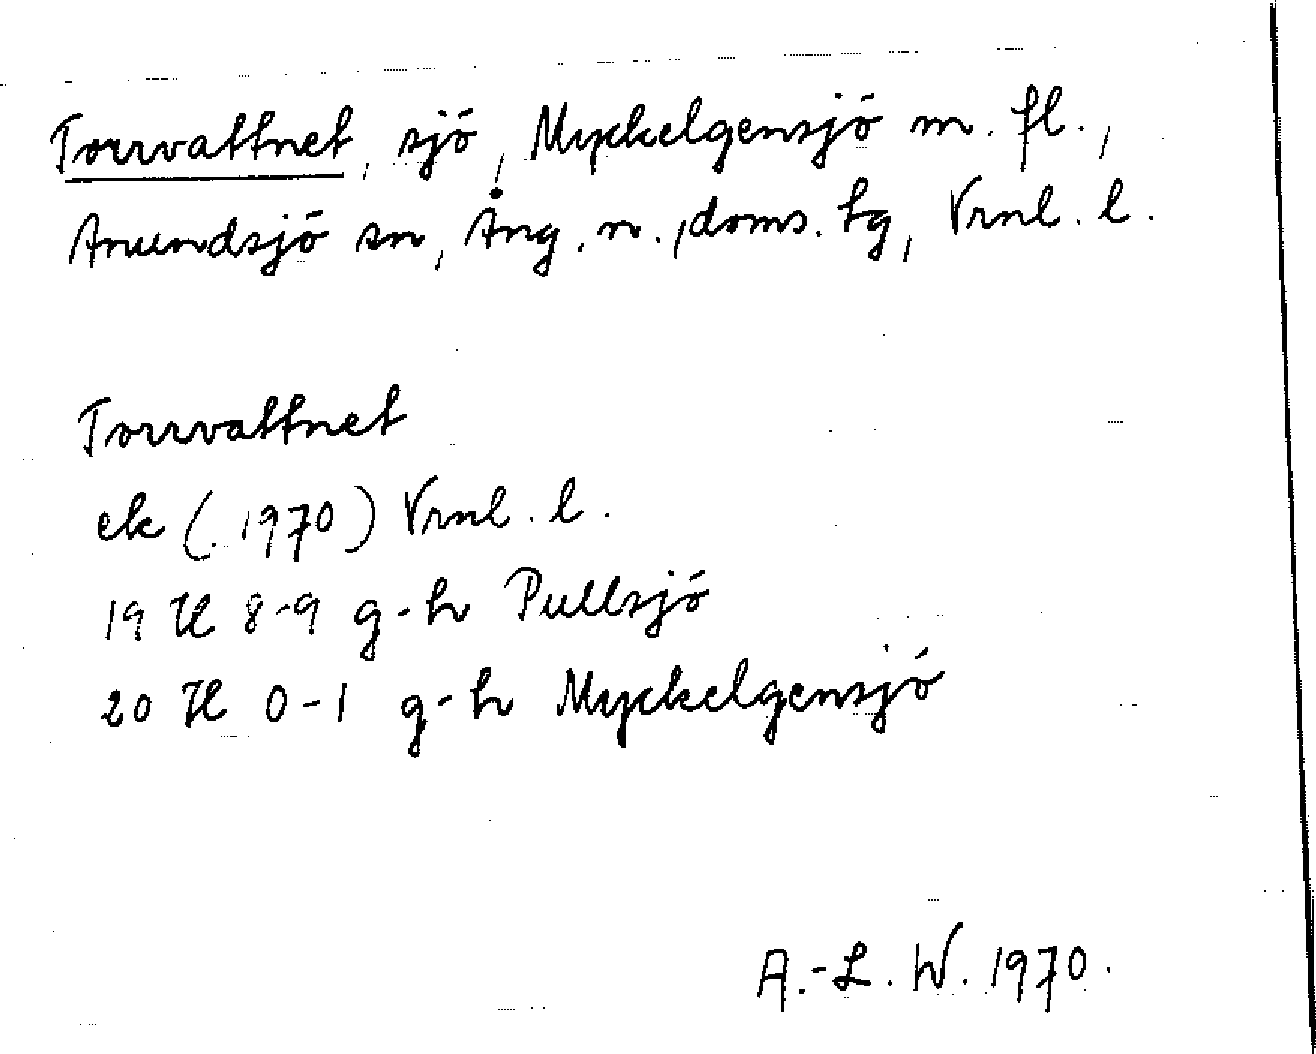 Torrvattnet, sjö, Myckelgensjö m. fl.,
Anundsjö sn, Ång. n., doms. tg, Vrnl. l.
Torrvattnet
ek (. 1970) Vrnl. l.
19 H 8-9 g-h Pullsjö
20 H 0-1 g-h Myckelgensjö
A.-L. W. 1970.